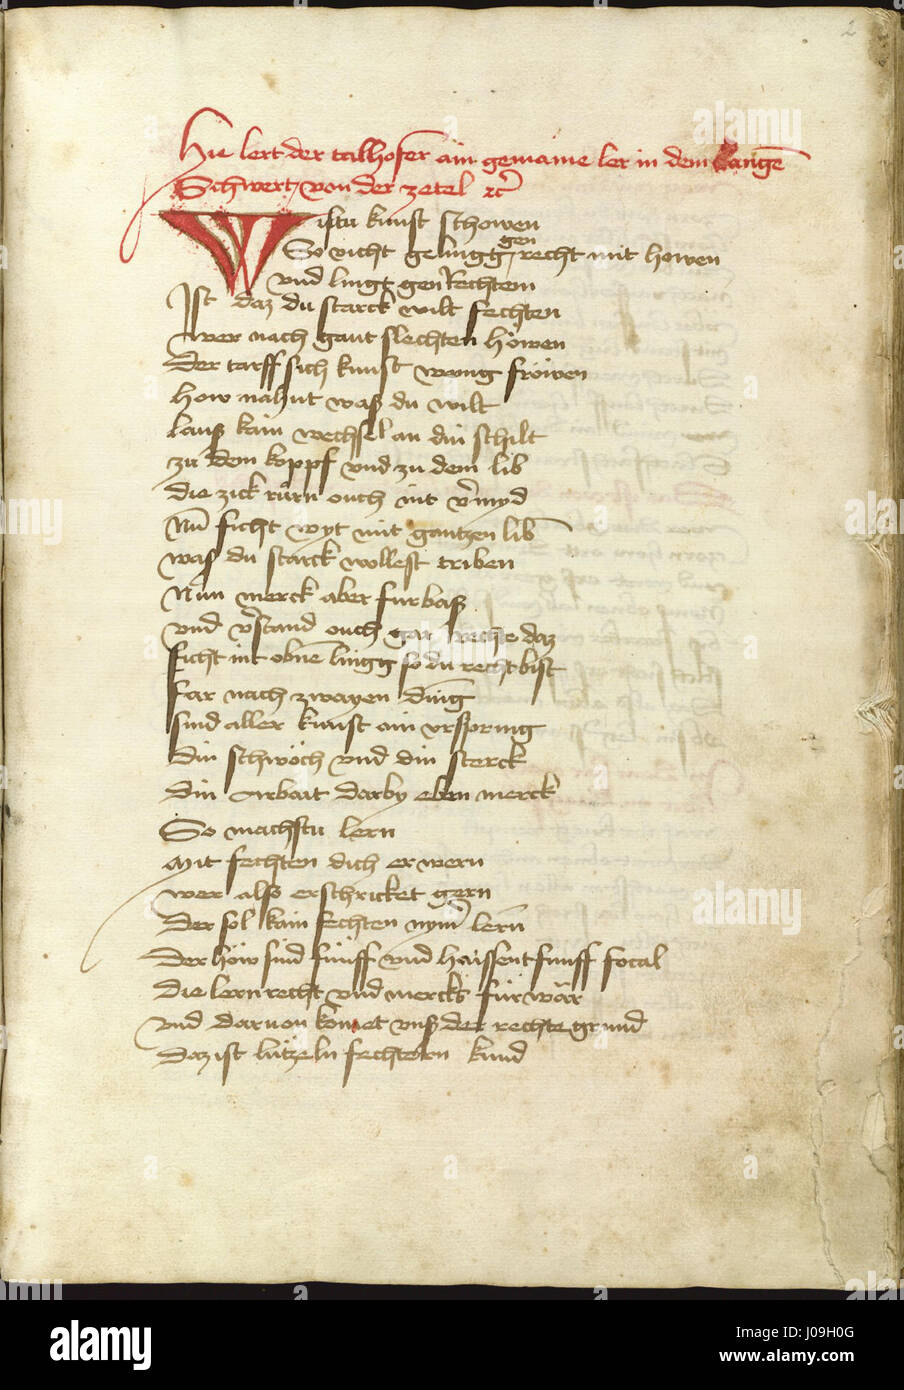 2
Hie lert der talhofer ain gemaine ler in dem Langē
Schwert von der zetel ꝛc
Wiltu kunst schowen
So vicht gelingg gen recht mit howen
vnd lingt gen Rechtem
Ist daz du starck wilt fechten
wer nach gaut slechten höwen
Der tarff sich kunst wenig fröwen
How nahnt waß du wilt
lauß kain wechsel an din schilt
zu dem koppf vnd zu dem lib
die zick rürn ouch nit v̄myd
Nū ficht wyt mit gantzen lib
waß du starck wollest triben
Nun merck aber furbaß
vnd v̄stand ouch gar reche daz
ficht nit obnē lingg so du recht bist
far nach zwayen ding
sind aller kunst ain vrspring
Din schwöch vnd din sterck
Din Arbait darby eben merck
So machstu lern
Mit fechten dich erwern
wer alß erschricket gern
Der sol kain fechten nym̄ lern
Der höw sind fünff vnd haissent funff focal
Die lern recht vnd mercks für wăr
vnd daruon komet vnß der rechte grund
Daz ist lützeln fechtern kund
alamy
a
alamy
Image ID: J09H0G
www.alamy.com